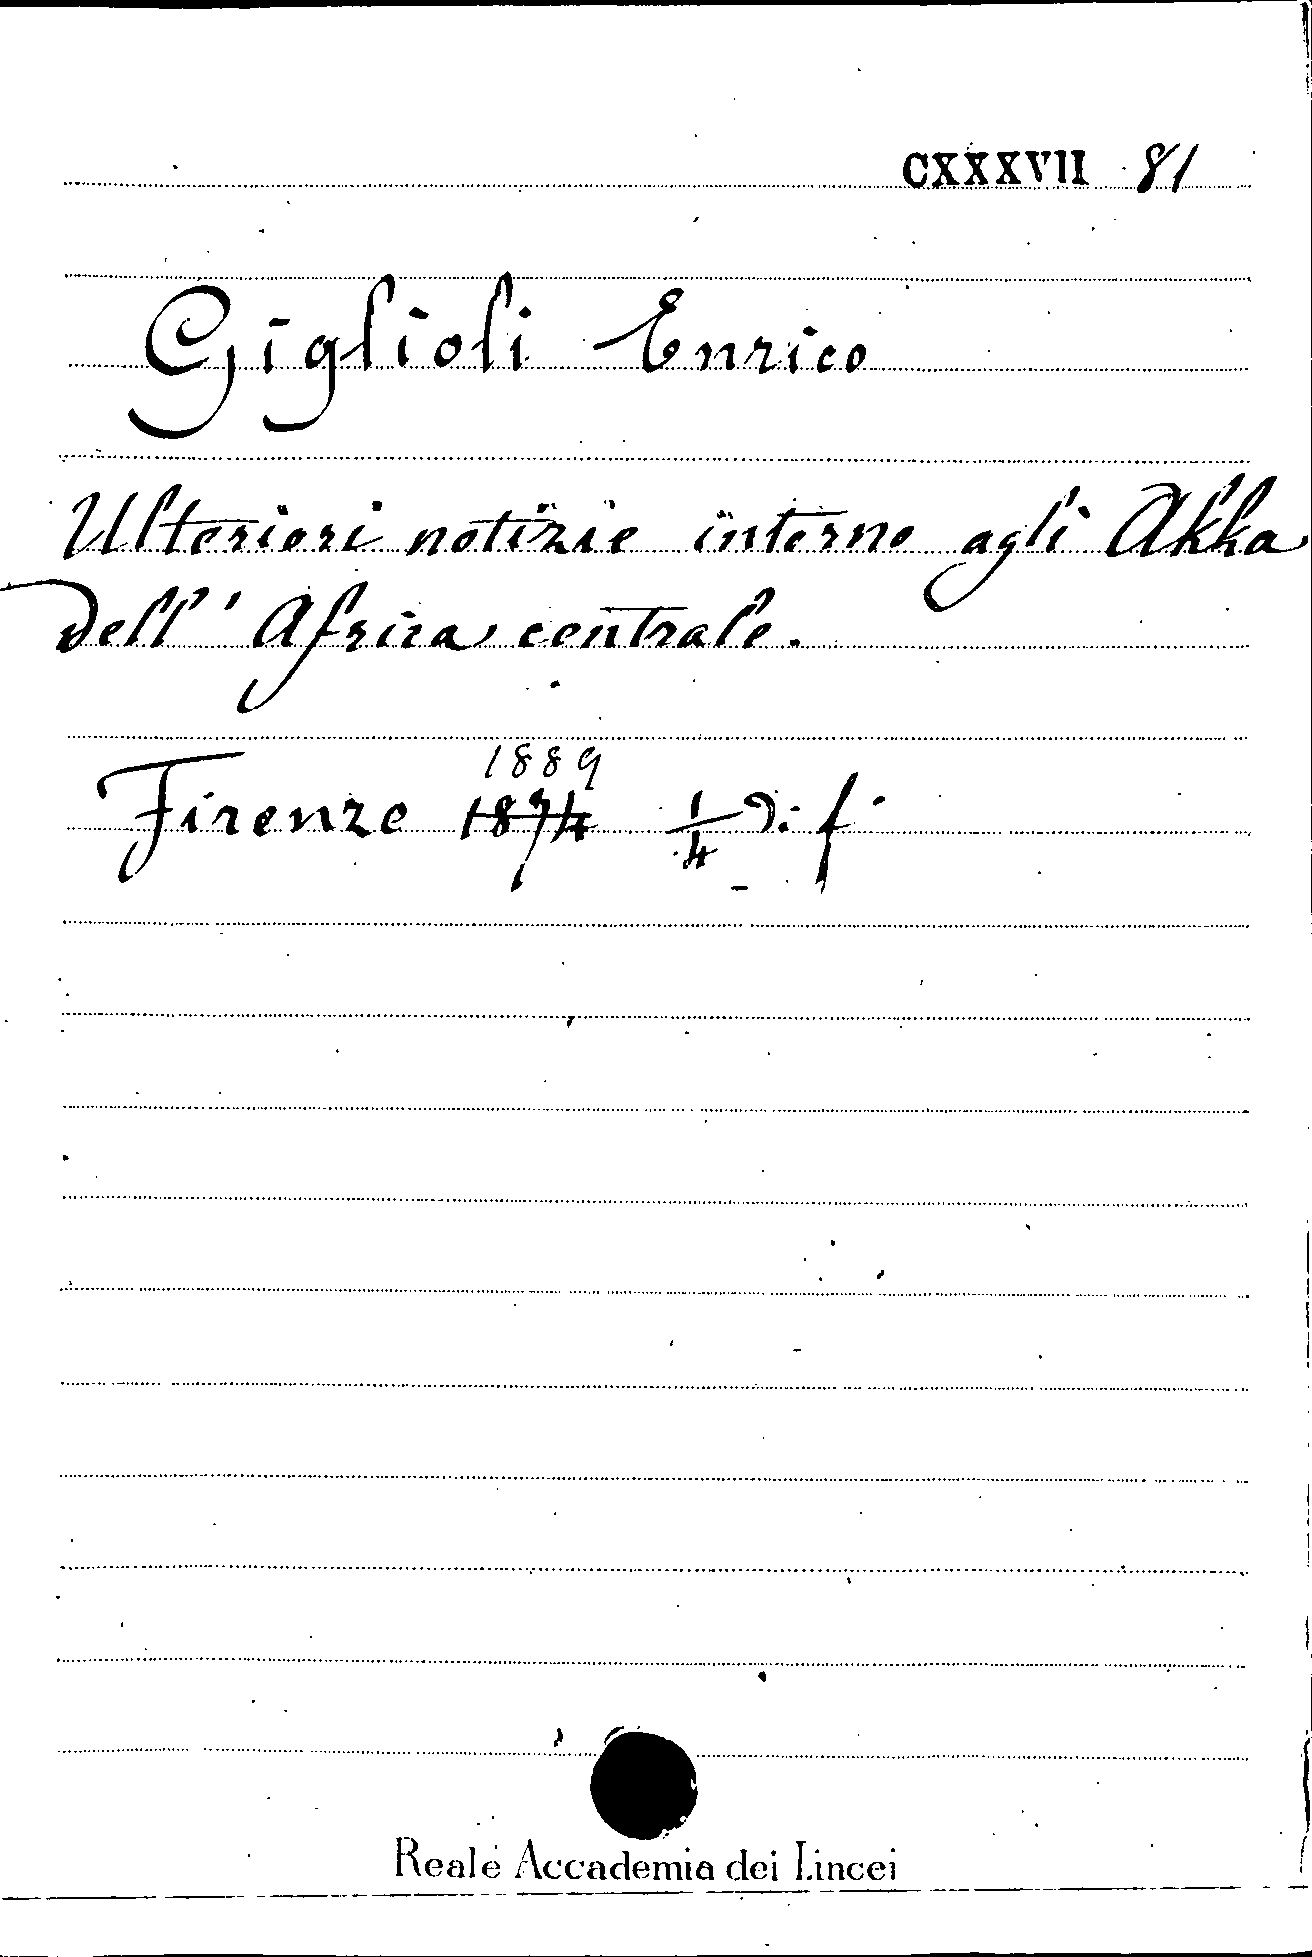 CXXXVII 81
Giglioli Enrico
Ulteriori notizie intorno agli Akka
dell' Africa centrale.
1889
Firenze 1874 1/4 di f.
Reale Accademia dei Lincei